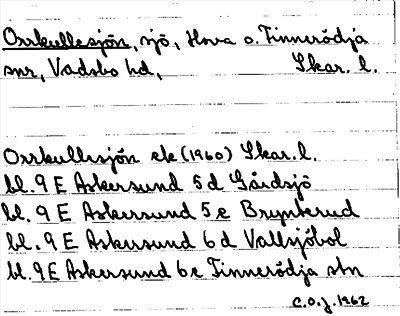 Orrkullesjön, sjö, Hova o. Finnerödja
snr, Vadsbo hd, Skar. l.
Orrkullesjön ek (1960) Skar. l.
bl. 9 E Askersund 5 d Gårdsjö
bl. 9 E Askersund 5 e Brynterud
bl. 9 E Askersund 6 d Vallsjöbol
bl. 9 E Askersund 6 e Finnerödja stn
C.O.J. 1962